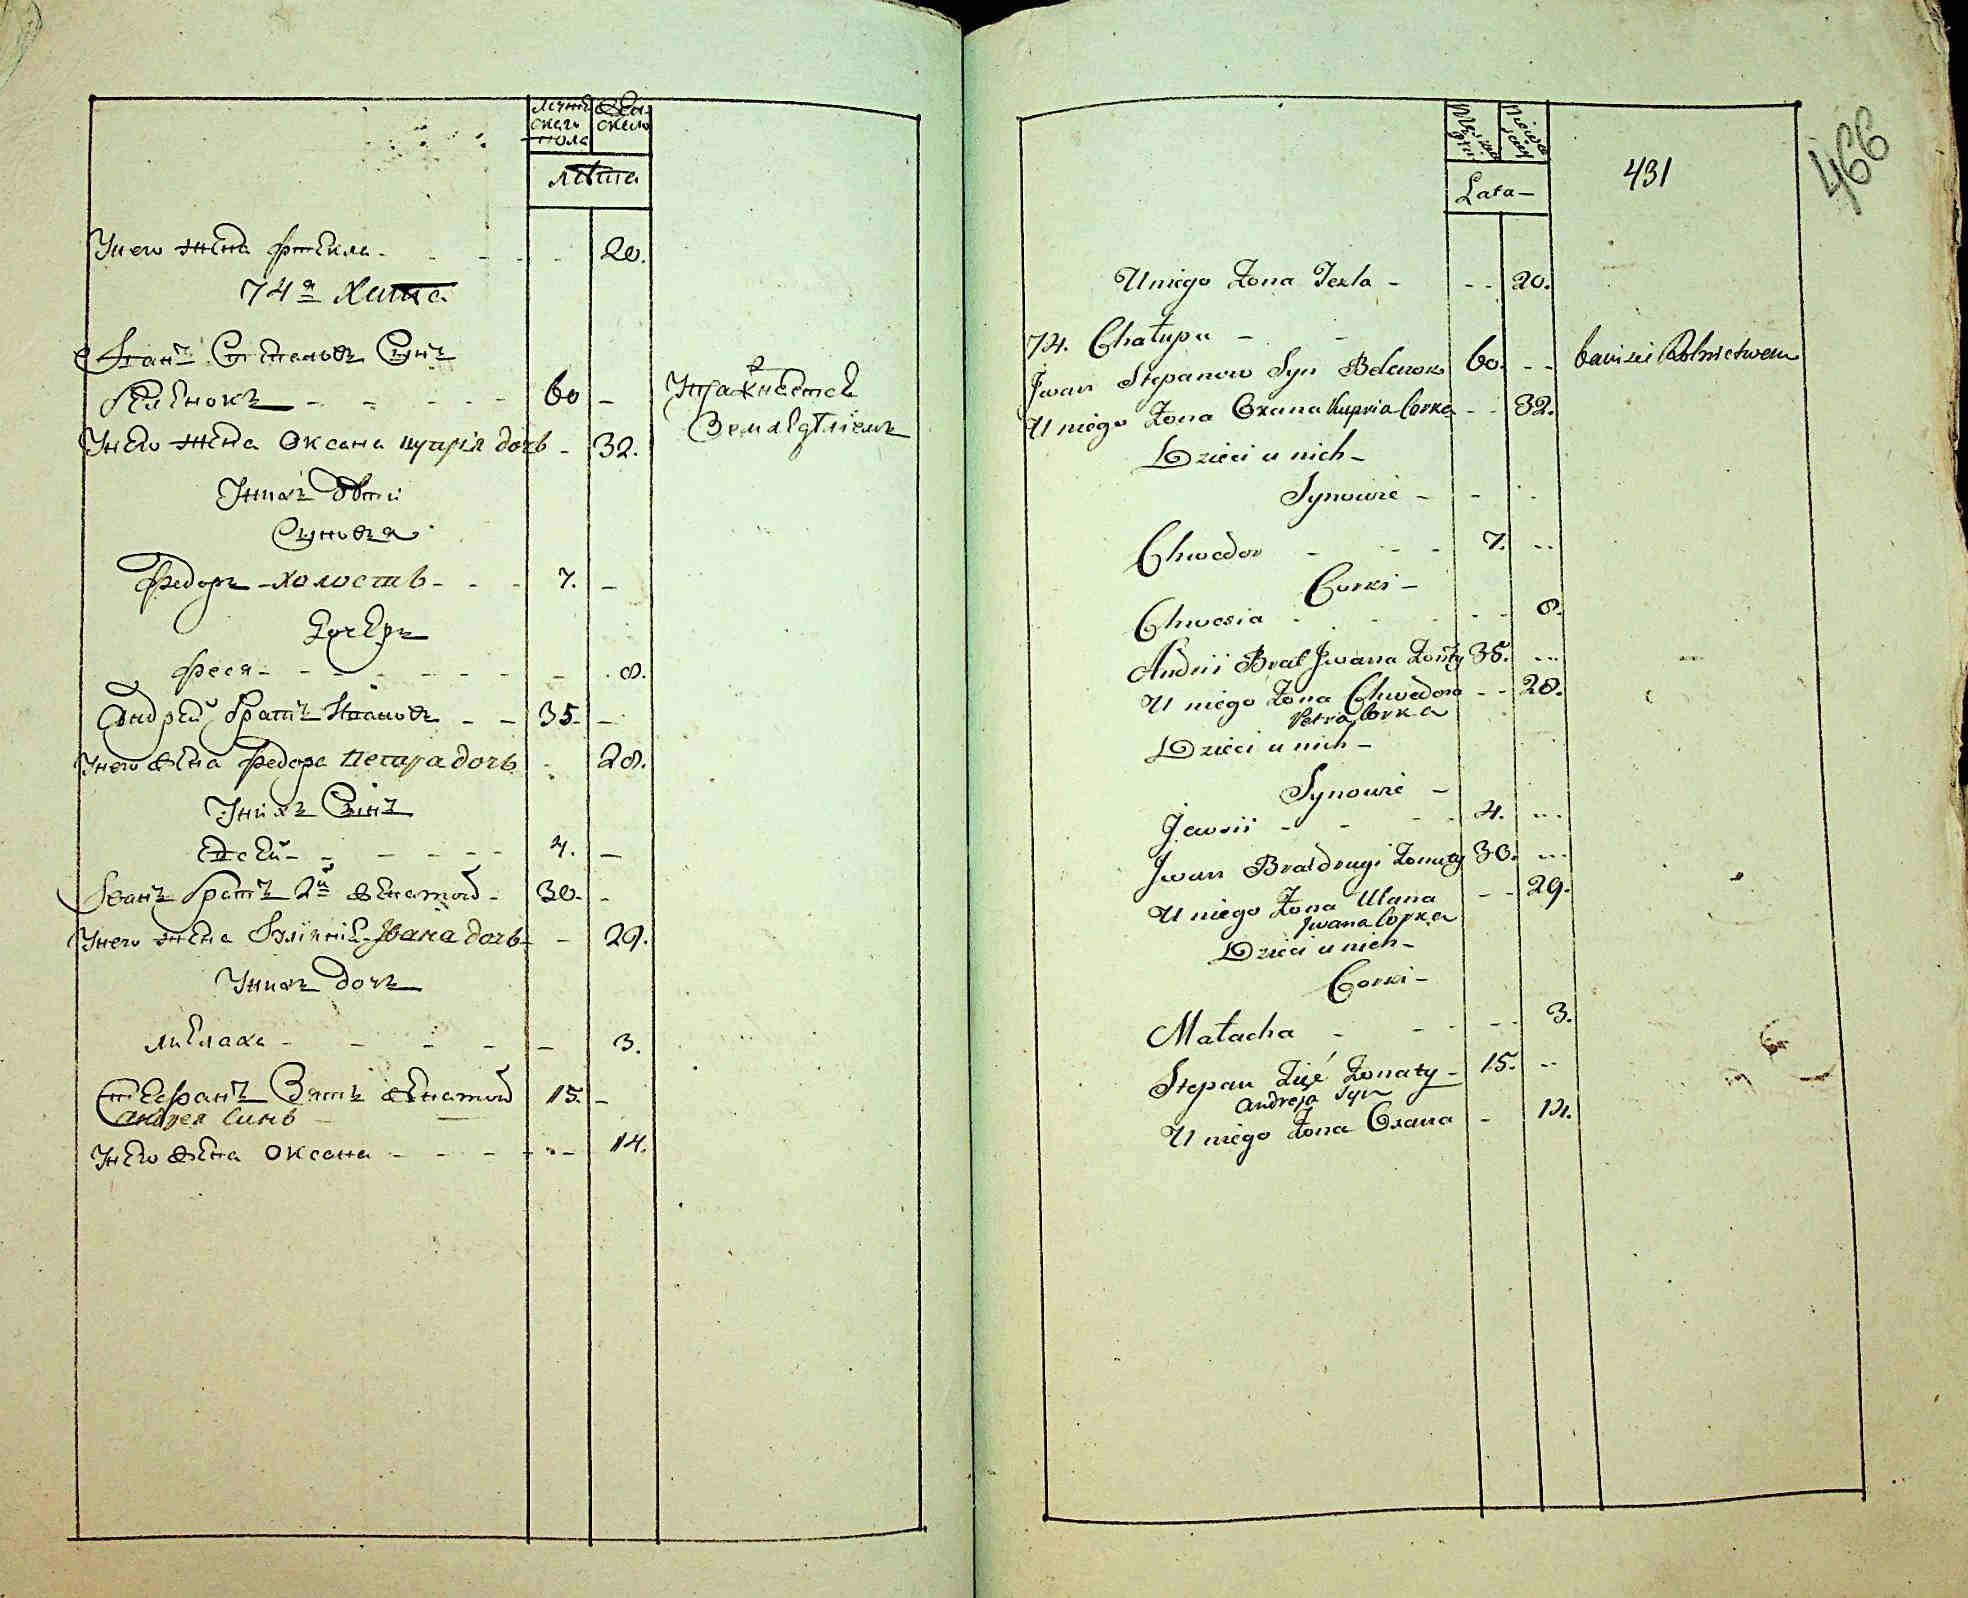 мужеска пола
женска
лѣта
У него жена Фтекла - - - - - 20.
74я Хата
Иванъ Степановъ Сынъ
Беленокъ - - - - - 60 -
Упражняется
Земледѣліемъ
У него жена Оксана купрія дочь - 32.
У нихъ дѣти
Сыновья
Федоръ - холостъ - - - 7. -
Дочерь
Феся - - - - - - - . 8.
Андрей братъ Ивановъ - - 35. -
У него жена Федора петра дочь - 28.
У нихъ Сынъ
Евсей - - - - - - 4. -
Иванъ братъ 2й женатой - 30. -
У него жена Улiяна Iвана дочь - - 29.
У нихъ дочь
Малаха - - - - - - 3.
Стефанъ Зять женатой 15. -
андрея синъ
У него жена Оксана - - - - - - 14.
Męska płci
Niewieściej
Lata -
431
466
U niego Żona Tekla - - - 20.
74. Chałupa -
Jwan Stepanow Syn Belenok 60. - - bawi się Rolnictwem
U niego Żona Oxana Kupria Corka - - 32.
Dzieci u nich -
Synowie - - -
Chwedor - - - 7. - -
Corki -
Chwesia - - - - 8.
Andrii Brat Jwana Żonaty 35. - -
U niego Żona Chwedora - - 28.
Petra Corka
Dzieci u nich -
Synowie -
Jewsii - - - - 4. - -
Jwan Brat drugi Żonaty 30. - -
U niego Żona Ulana - - 29.
Jwana Corka
Dzieci u nich -
Corki -
Małacha - - - - - 3.
Stepan Zięć Żonaty - 15. - -
Andreja Syn
U niego Żona Oxana - - 14.